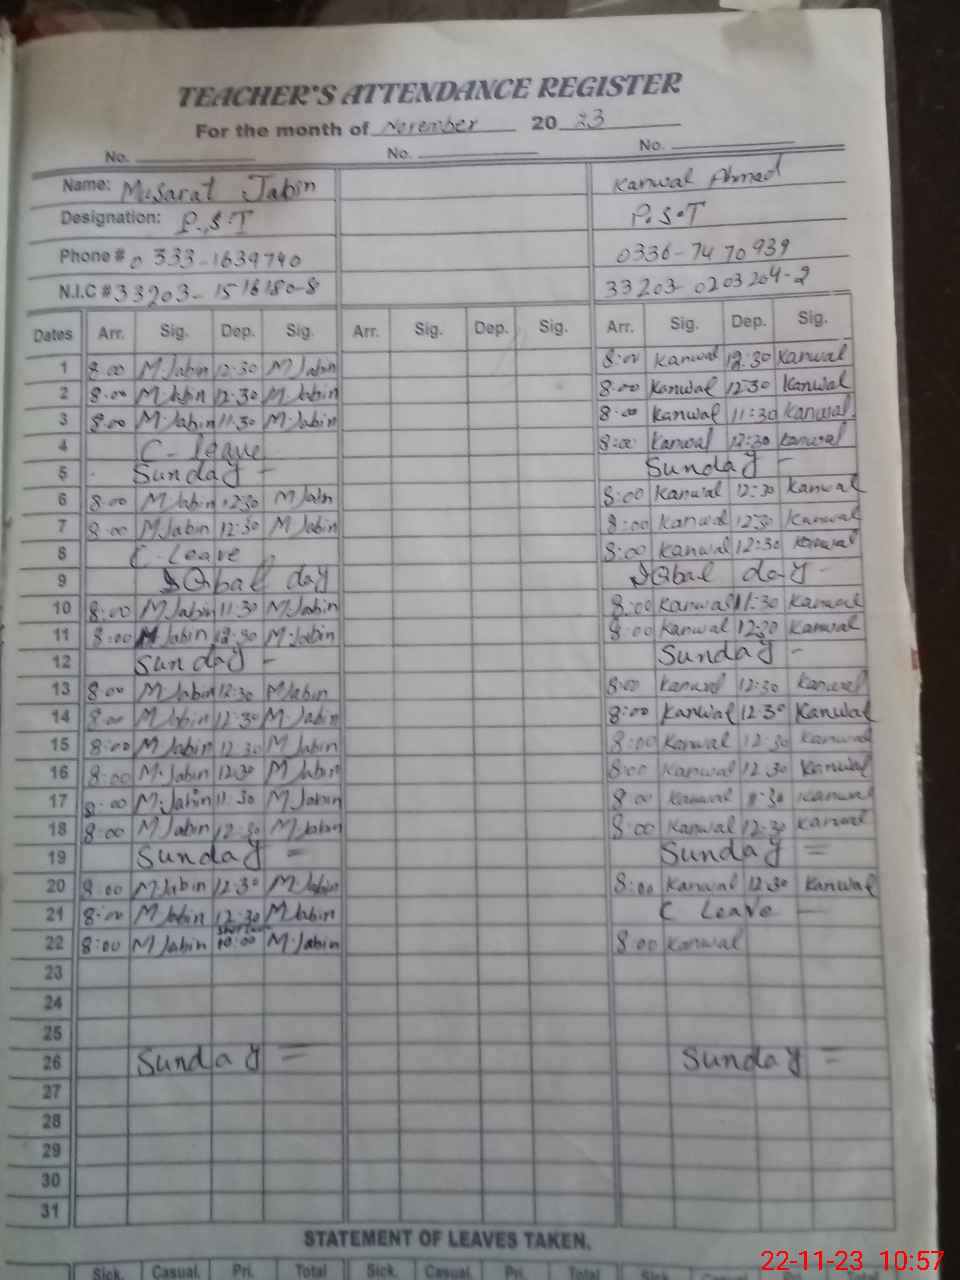 TEACHER'S ATTENDANCE REGISTER
For the month of November 20 23
No. No. No.
Name: Musarat Jabin Kanwal Ahmad
Designation: P.S.T P.S.T
Phone # 0 333-1639740 0336-7470939
N.I.C # 33203-1516180-8 33203-0203204-2
Dates Arr. Sig. Dep. Sig. Arr. Sig. Dep. Sig. Arr. Sig. Dep. Sig.
1 8:00 M Jabin 12:30 M Jabin 8:00 Kanwal 12:30 Kanwal
2 8:00 M Jabin 12:30 M Jabin 8:00 Kanwal 12:30 Kanwal
3 8:00 M Jabin 11:30 M Jabin 8:00 Kanwal 11:30 Kanwal
4 C-leave 8:00 Kanwal 12:30 Kanwal
5 Sunday - Sunday -
6 8:00 M Jabin 12:30 M Jabin 8:00 Kanwal 12:30 Kanwal
7 8:00 M Jabin 12:30 M Jabin 8:00 Kanwal 12:30 Kanwal
8 C-Leave 8:00 Kanwal 12:30 Kanwal
9 IQbal day IQbal day -
10 8:00 M Jabin 11:30 M Jabin 8:00 Kanwal 11:30 Kanwal
11 8:00 M Jabin 12:30 M.Jabin 8:00 Kanwal 12:30 Kanwal
12 Sunday - Sunday -
13 8:00 M Jabin 12:30 M Jabin 8:00 Kanwal 12:30 Kanwal
14 8:00 M Jabin 12:30 M.Jabin 8:00 Kanwal 12:30 Kanwal
15 8:00 M Jabin 12:30 M Jabin 8:00 Kanwal 12:30 Kanwal
16 8:00 M.Jabin 12:30 M Jabin 8:00 Kanwal 12:30 Kanwal
17 8:00 M.Jabin 11:30 M Jabin 8:00 Kanwal 11:30 Kanwal
18 8:00 M Jabin 12:30 M Jabin 8:00 Kanwal 12:30 Kanwal
19 Sunday = Sunday =
20 8:00 M.Jabin 12:30 M.Jabin 8:00 Kanwal 12:30 Kanwal
21 8:00 M Jabin 12:30 M Jabin C Leave -
22 8:00 M Jabin 10:00 M.Jabin 8:00 Kanwal
23
24
25
26 Sunday = Sunday =
27
28
29
30
31
STATEMENT OF LEAVES TAKEN.
Sick. Casual. Pri. Total Sick. Casual. Pri. Total Sick. Casual.
22-11-23 10:57